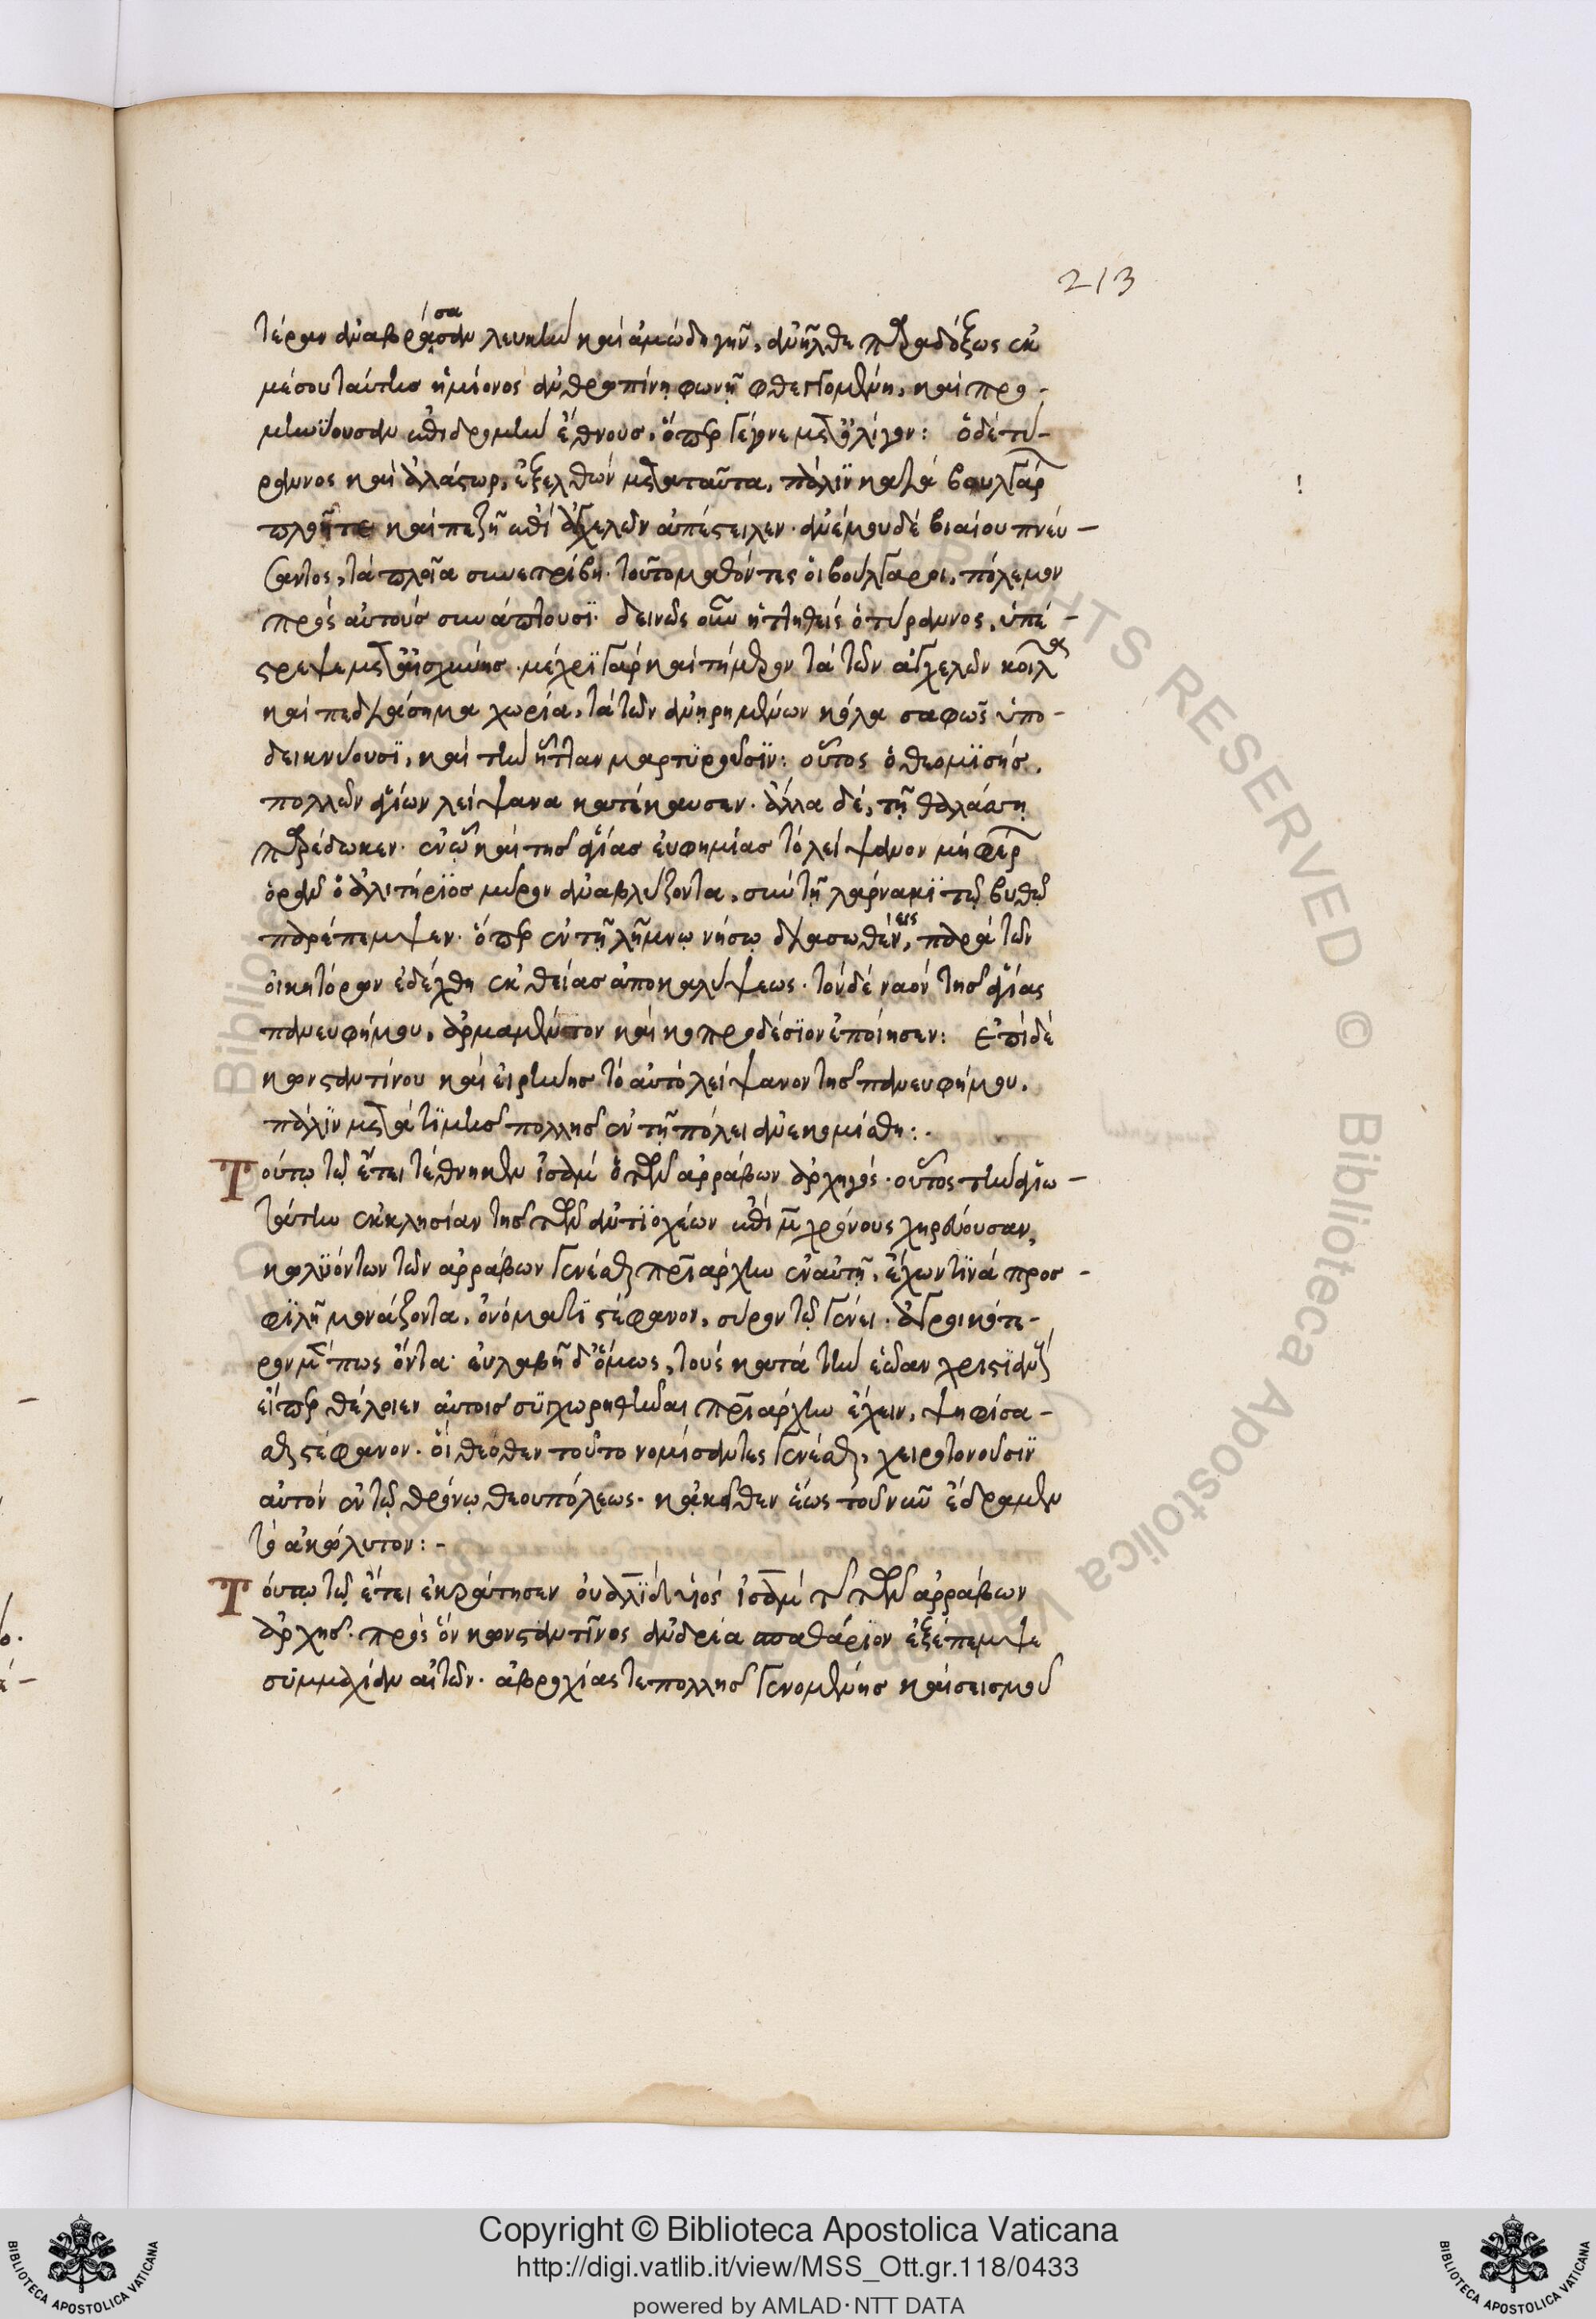 213
τέραν ἀναβράσασαν λευκὴν καὶ ἀμμώδη γῆν, ἀνῆλθε παραδόξως ἐκ
μέσου ταύτης ἡμίονος ἀνθρωπίνη φωνῆ φθεγγομένη, καὶ προ-
μηνύουσαν ἐπιδρομὴν ἔθνους, ὅπερ γέγονε μετ' ὀλίγον: ὁ δὲ τύ-
ραννος καὶ ἀλάστωρ, ἐξελθὼν μετὰ ταῦτα, πάλιν κατὰ βουλγάρ
πλοῖ τε καὶ πεζῆ ἐπὶ ἀγχελὼν ἀπέστειλεν. ἀνέμου δὲ βιαίου πνεύ-
σαντος, τὰ πλοῖα συνετρίβη. τοῦτο μαθόντες οἱ βούλγαροι, πόλεμον
πρὸς αὐτοὺς συνάπτουσι. δεινῶς οὖν ἡττηθεὶς ὁ τύραννος, ὑπέ-
στρεψε μετ' αἰσχύνης. μέχρι γὰρ καὶ τήμερον τὰ τῶν ἀγχελῶν κοιλ
καὶ πεδιάσημα χωρία, τὰ τῶν ἀνηρημένων κῶλα σαφῶς ὑπο-
δεικνύουσι, καὶ τὴν ἧτταν μαρτυροῦσιν: οὗτος ὁ θεομισής,
πολλῶν ἁγίων λείψανα κατέκαυσεν. ἄλλα δὲ, τῆ θαλάσση
παρέδωκεν. ἐν ὧ καὶ τῆς ἁγίας εὐφημίας τὸ λείψανον μὴ φέρ
ὁρᾶν ὁ ἀλιτήριος μύρον ἀναβλύζοντα, σὺν τῆ λάρνακι τῶ βυθῶ
παρέπεμψεν. ὅπερ ἐν τῆ λήμνω νήσω διασωθὲν, παρὰ τῶν
οἰκητόρων ἐδέχθη ἐκ θείας ἀποκαλύψεως. τὸν δὲ ναὸν τῆς ἁγίας
πανευφήμου, ἀρμαμέντον καὶ κοπροδέσιον ἐποίησεν: Ἐπὶ δὲ
κωνσταντίνου καὶ εἰρήνης τὸ αὐτὸ λείψανον τῆς πανευφήμου,
πάλιν μετὰ τιμῆς πολλῆς ἐν τῆ πόλει ἀνεκομίσθη:.
Τούτω τῶ ἔτει τέθνηκεν ἰσὰμ ὁ τῶν ἀρράβων ἀρχηγός. οὗτος τὴν ἁγιω-
τάτην ἐκκλησίαν τῆς τῶν ἀντιοχέων ἐπὶ μ χρόνους χηρεύουσαν,
κωλυόντων τῶν ἀρράβων γενέσθαι πριάρχην ἐν αὐτῆ, ἔχων τινὰ προσ-
φιλῆ μονάζοντα, ὀνόματι στέφανον, σύρον τῶ γένει. ἀγροικότε-
ρον μέν πως ὄντα. εὐλαβῆ δ' ὅμως, τοὺς κατὰ τὴν ἑώαν χριστιανοὺς
εἴπερ θέλοιεν αὐτοῖς συγχωρηθῆναι πριάρχην ἔχειν, ψηφίσα-
σθαι στέφανον. οἱ θεόθεν τοῦτο νομίσαντες γενέσθαι, χειροτονοῦσιν
αὐτὸν ἐν τῶ θρόνω θεουπόλεως. κἀκεῖθεν ἕως τοῦ νῦν ἔδραμεν
τὸ ἀκώλυτον:-
Τούτω τῶ ἔτει ἐκράτησεν οὐαλὶδ υἱὸς ἰσὰμ τῆς τῶν ἀρράβων
ἀρχῆς. πρὸς ὃν κωνσταντῖνος ἀνδρέα σπαθάριον ἐξέπεμψε
συμμαχίαν αἰτῶν. ἀβροχίας τε πολλῆς γενομένης καὶ σεισμοῦ
!
Copyright © Biblioteca Apostolica Vaticana
http://digi.vatlib.it/view/MSS_Ott.gr.118/0433
powered by AMLAD·NTT DATA